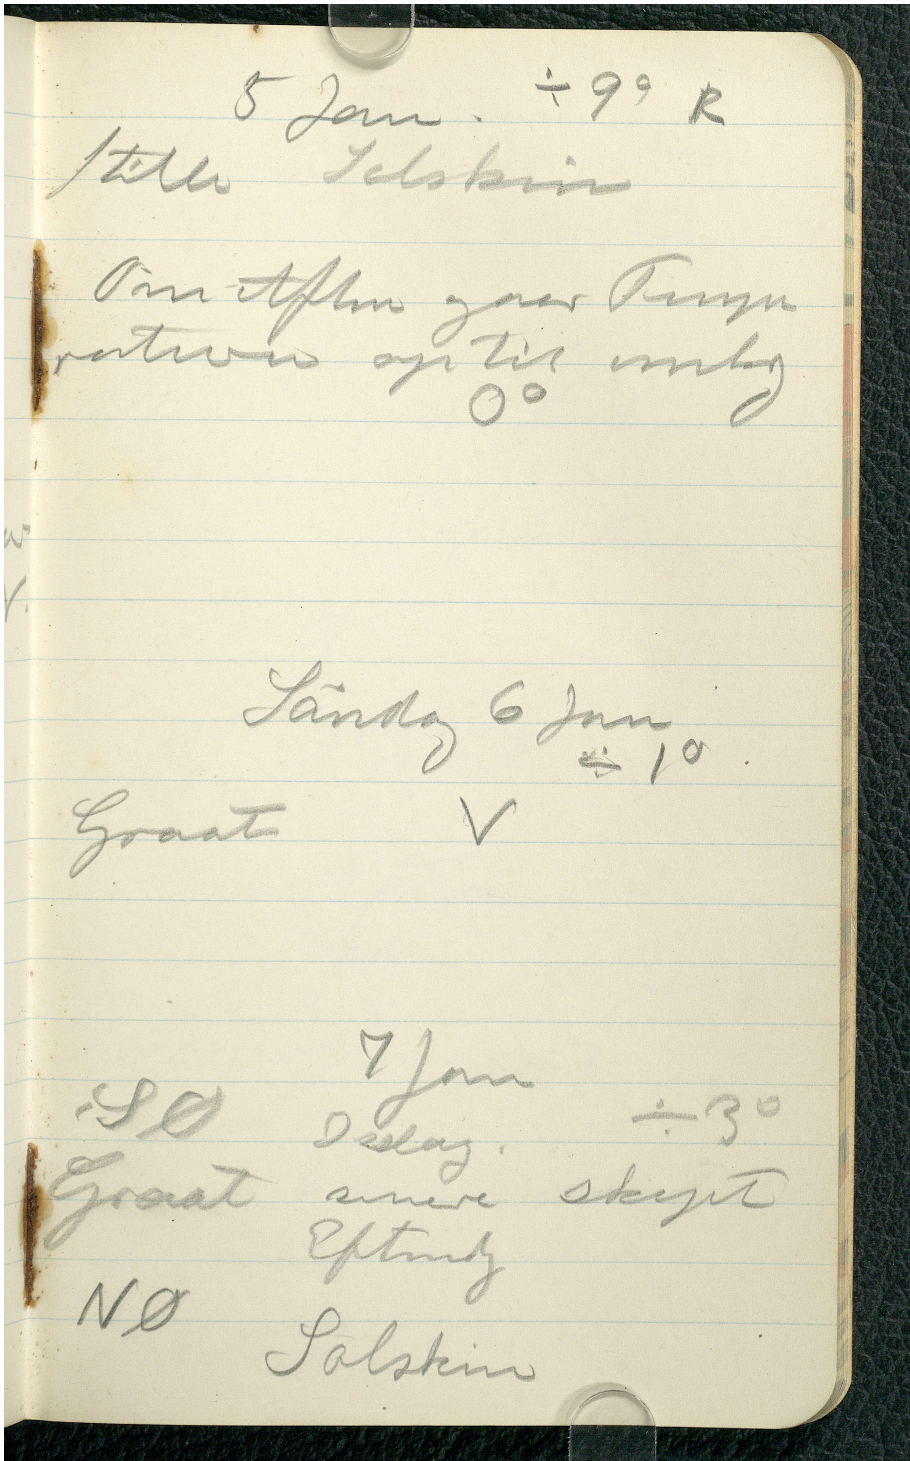 5 Jan. ÷ 9° R
stille Solskin
Om Aften gaar Tempe
raturen op til omkg
0°
Söndag 6 Jan
÷ 1°
Graat V
7 Jan
SØ ÷ 3°
Isslag.
Graat senere skyet
Eftmdg
NØ
Solskin